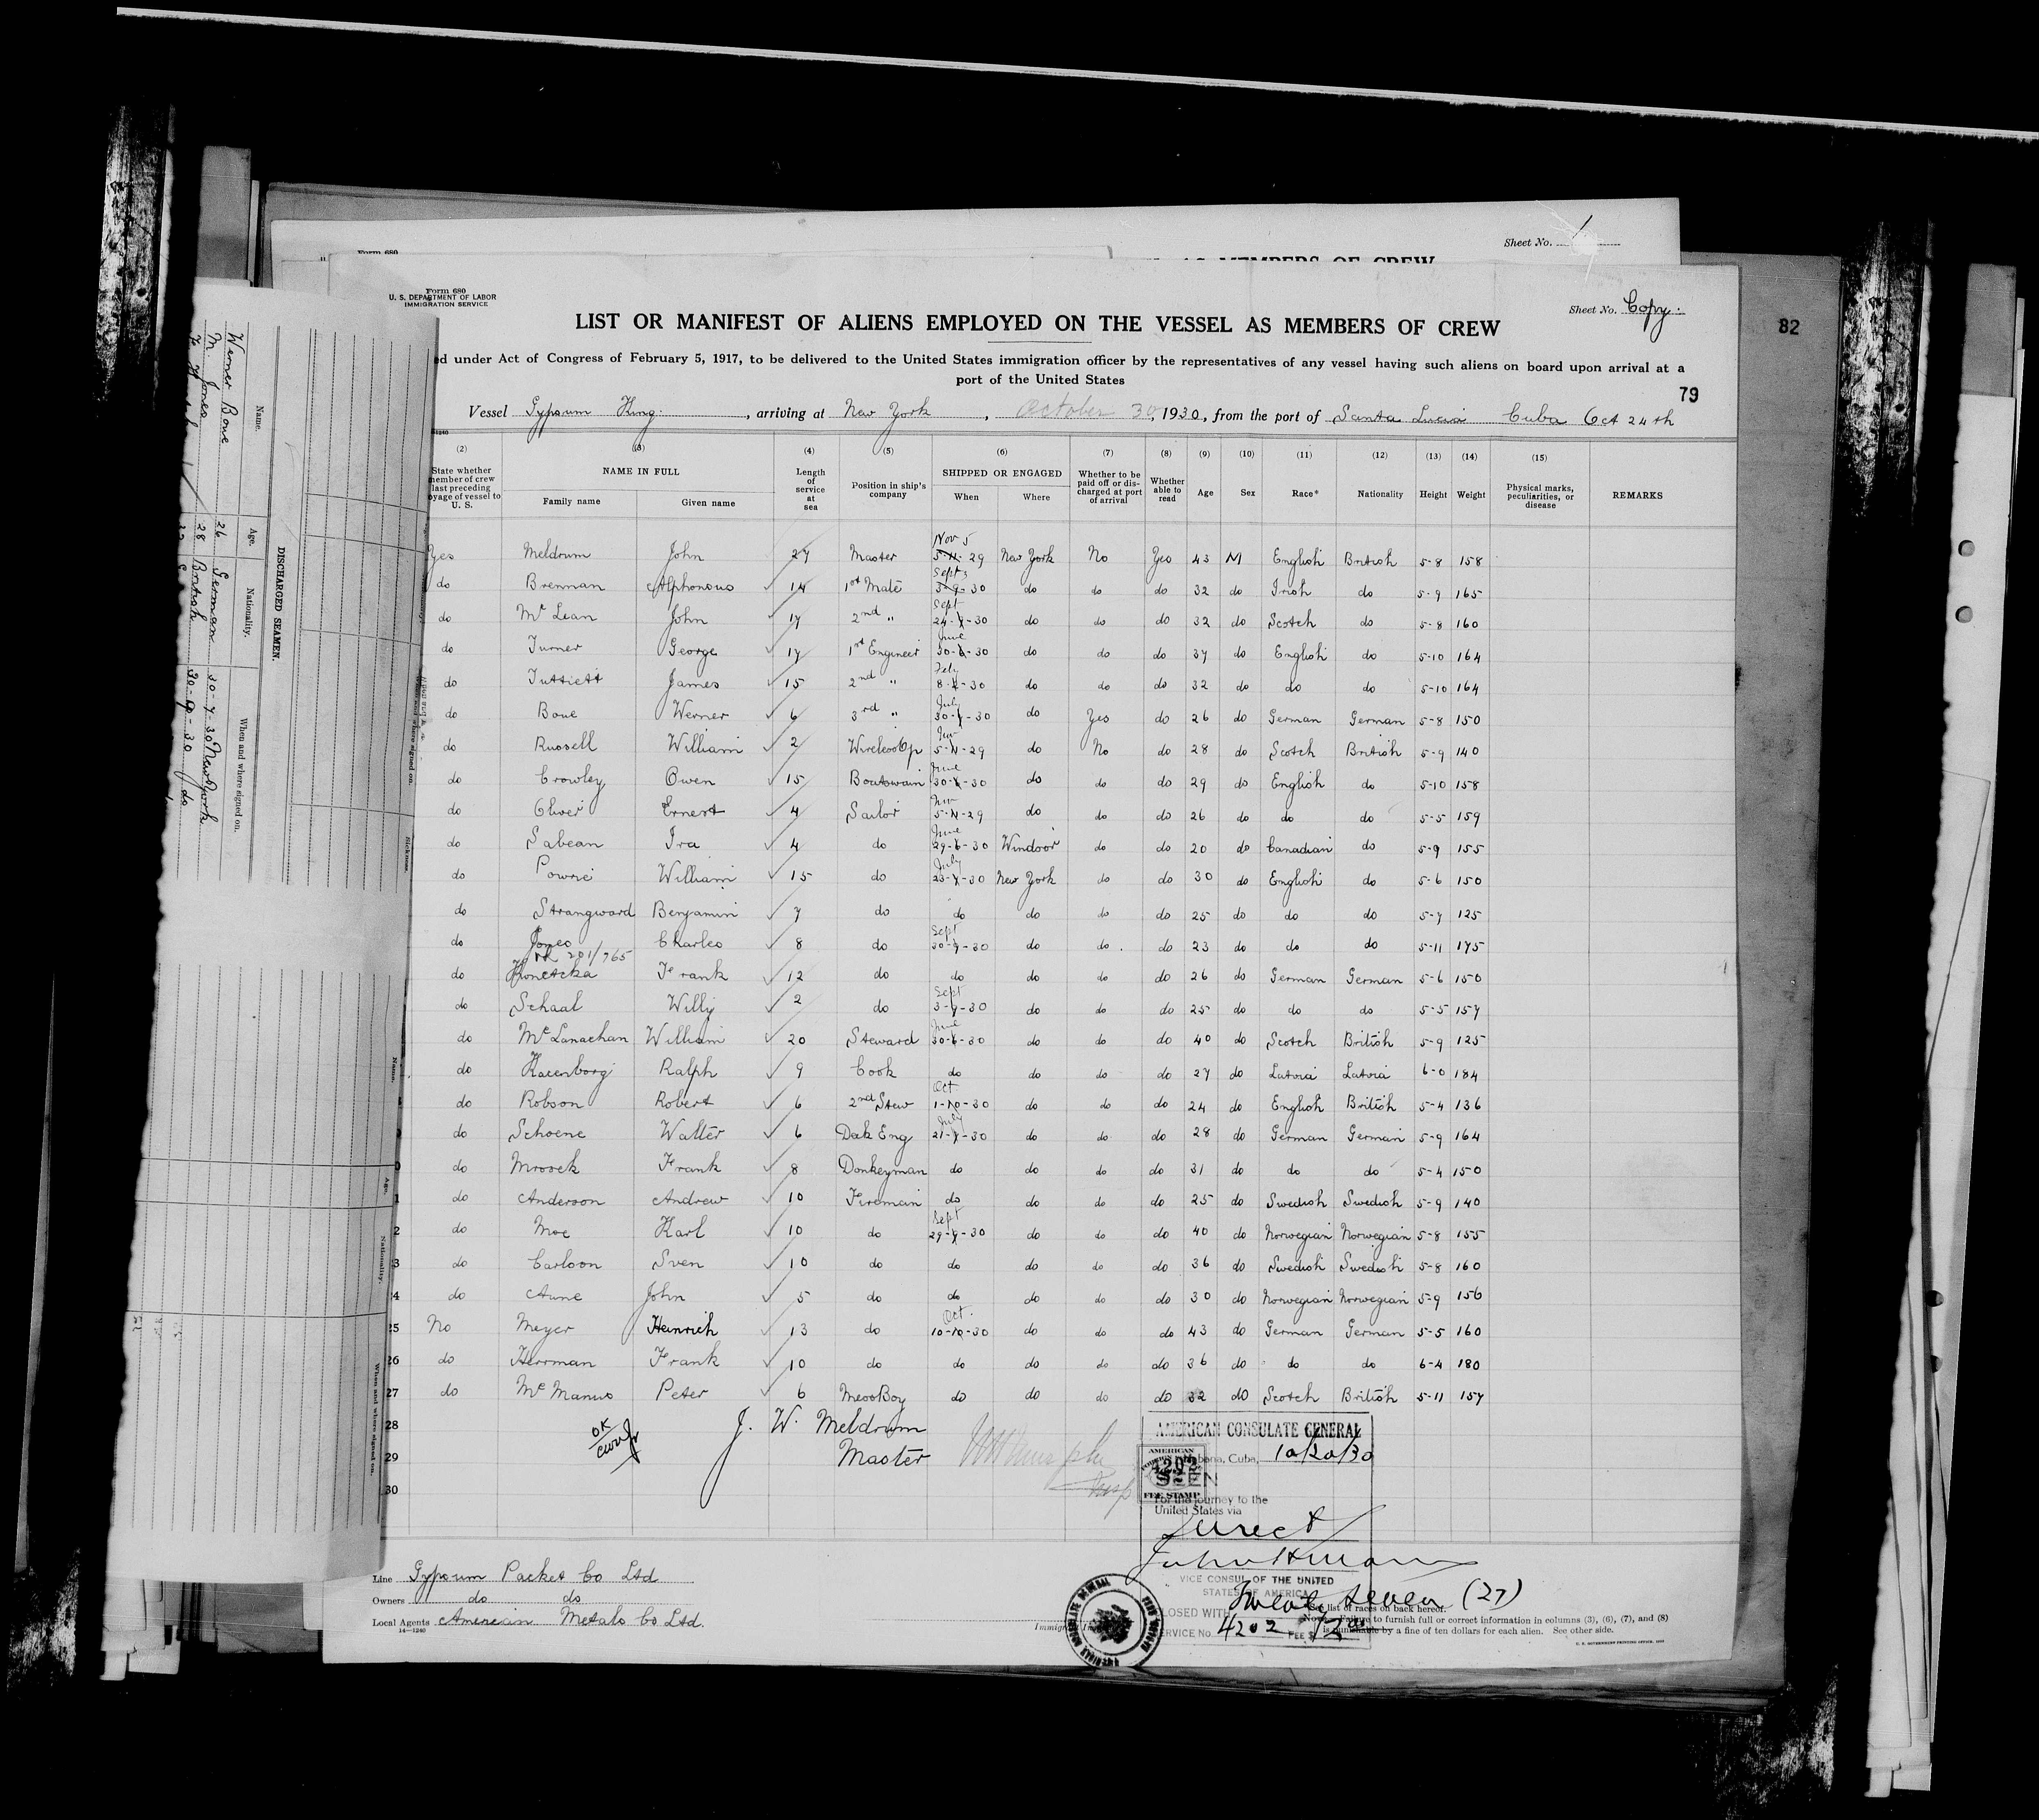 Sheet No. 1
Form 680
AS MEMBERS OF CREW
Form 680
U. S. DEPARTMENT OF LABOR
IMMIGRATION SERVICE
Sheet No. Copy.
82
LIST OR MANIFEST OF ALIENS EMPLOYED ON THE VESSEL AS MEMBERS OF CREW
ed under Act of Congress of February 5, 1917, to be delivered to the United States immigration officer by the representatives of any vessel having such aliens on board upon arrival at a
port of the United States
79
Vessel Gypsum King, arriving at New York, October 30, 1930, from the port of Santa Lucia Cuba Oct 24th
(2) (3) (4) (5) (6) (7) (8) (9) (10) (11) (12) (13) (14) (15)
State whether member of crew last preceding oyage of vessel to U. S. NAME IN FULL Family name Given name Length of service at sea Position in ship's company SHIPPED OR ENGAGED When Where Whether to be paid off or discharged at port of arrival Whether able to read Age Sex Race* Nationality Height Weight Physical marks, peculiarities, or disease REMARKS
Yes Meldrum John 27 Master Nov 5 5-11-29 New York No Yes 43 M English British 5-8 158
do Brennan Alphonous 14 1st Mate Sept 3 3-9-30 do do do 32 do Irish do 5-9 165
do Mc Lean John 17 2nd " Sept 24-9-30 do do do 32 do Scotch do 5-8 160
do Turner George 17 1st Engineer June 30-6-30 do do do 37 do English do 5-10 164
do Tuttiett James 15 2nd " 8--30 do do do 32 do do do 5-10 164
do Boue Werner 6 3rd " July 30-7-30 do Yes do 26 do German German 5-8 150
do Russell William 2 Wireless Op Nov 5-11-29 do No do 28 do Scotch British 5-9 140
do Crowley Owen 15 Boatswain June 30-6-30 do do do 29 do English do 5-10 158
do Oliver Ernest 4 Sailor Nov 5-11-29 do do do 26 do do do 5-5 159
do Sabean Ira 4 do June 29-6-30 Windsor do do 20 do Canadian do 5-9 155
do Powrie William 15 do July 23-7-30 New York do do 30 do English do 5-6 150
do Strangward Benjamin 7 do do do do do 25 do do do 5-7 125
do Jones Charles 8 do Sept 30-9-30 do do do 23 do do do 5-11 175
201/765
do Konetzka Frank 12 do do do do do 26 do German German 5-6 150
do Schaal Willy 2 do Sept 3-9-30 do do do 25 do do do 5-5 157
do Mc Lanachan William 20 Steward June 30-6-30 do do do 40 do Scotch British 5-9 125
do Kacenborg Ralph 9 Cook do do do do 27 do Latvia Latvia 6-0 184
do Robson Robert 6 2nd Stew Oct 1-10-30 do do do 24 do English British 5-4 136
do Schoene Walter 6 Deck Eng July 21-7-30 do do do 28 do German German 5-9 164
do Mrosek Frank 8 Donkeyman do do do do 31 do do do 5-4 150
do Anderson Andrew 10 Fireman do do do do 25 do Swedish Swedish 5-9 140
do Moe Karl 10 do Sept 29-9-30 do do do 40 do Norwegian Norwegian 5-8 155
do Carlson Sven 10 do do do do do 36 do Swedish Swedish 5-8 160
do Aune John 5 do do do do do 30 do Norwegian Norwegian 5-9 156
25 No Meyer Heinrich 13 do Oct 10-10-30 do do do 43 do German German 5-5 160
26 do Herrman Frank 10 do do do do do 36 do do do 6-4 180
27 do Mc Manus Peter 6 Mess Boy do do do do 32 do Scotch British 5-11 157
28
29
30
OK
J. W. Meldrum
Master
AMERICAN CONSULATE GENERAL
Habana, Cuba, 10/20/30
AMERICAN
4202
SEEN
FEE STAMP
For the journey to the
United States via
Direct
VICE CONSUL OF THE UNITED
STATES OF AMERICA
Twenty seven (27)
CLOSED WITH
SERVICE No. 4202 FEE $
Line Gypsum Packet Co Ltd
Owners do do
Local Agents American Metals Co Ltd.
14—1240
See list of races on back hereof.
Note.—Failure to furnish full or correct information in columns (3), (6), (7), and (8)
is punishable by a fine of ten dollars for each alien. See other side.
U. S. GOVERNMENT PRINTING OFFICE
DISCHARGED SEAMEN.
Name. Age. Nationality. When and where signed on.
Werner Boue 26 German 30-7-30 New York
M Jones 28 British 30-9-30 do
Sickness.
Name. Age. Nationality. When and where signed on.